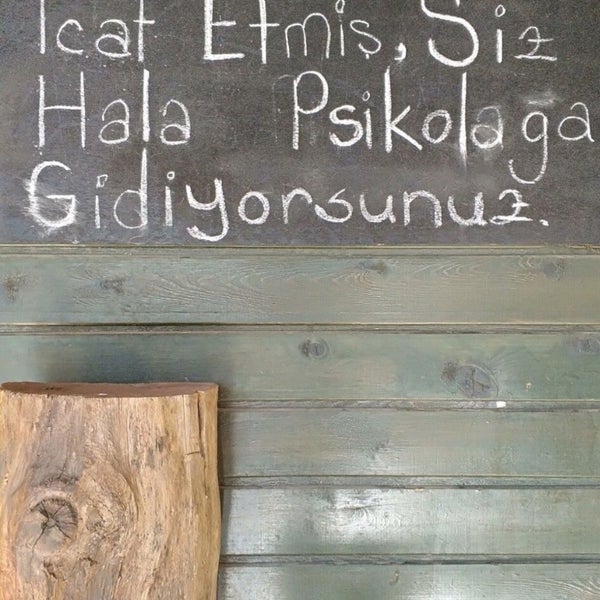 İcat Etmiş, Siz
Hala Psikolağa
Gidiyorsunuz.